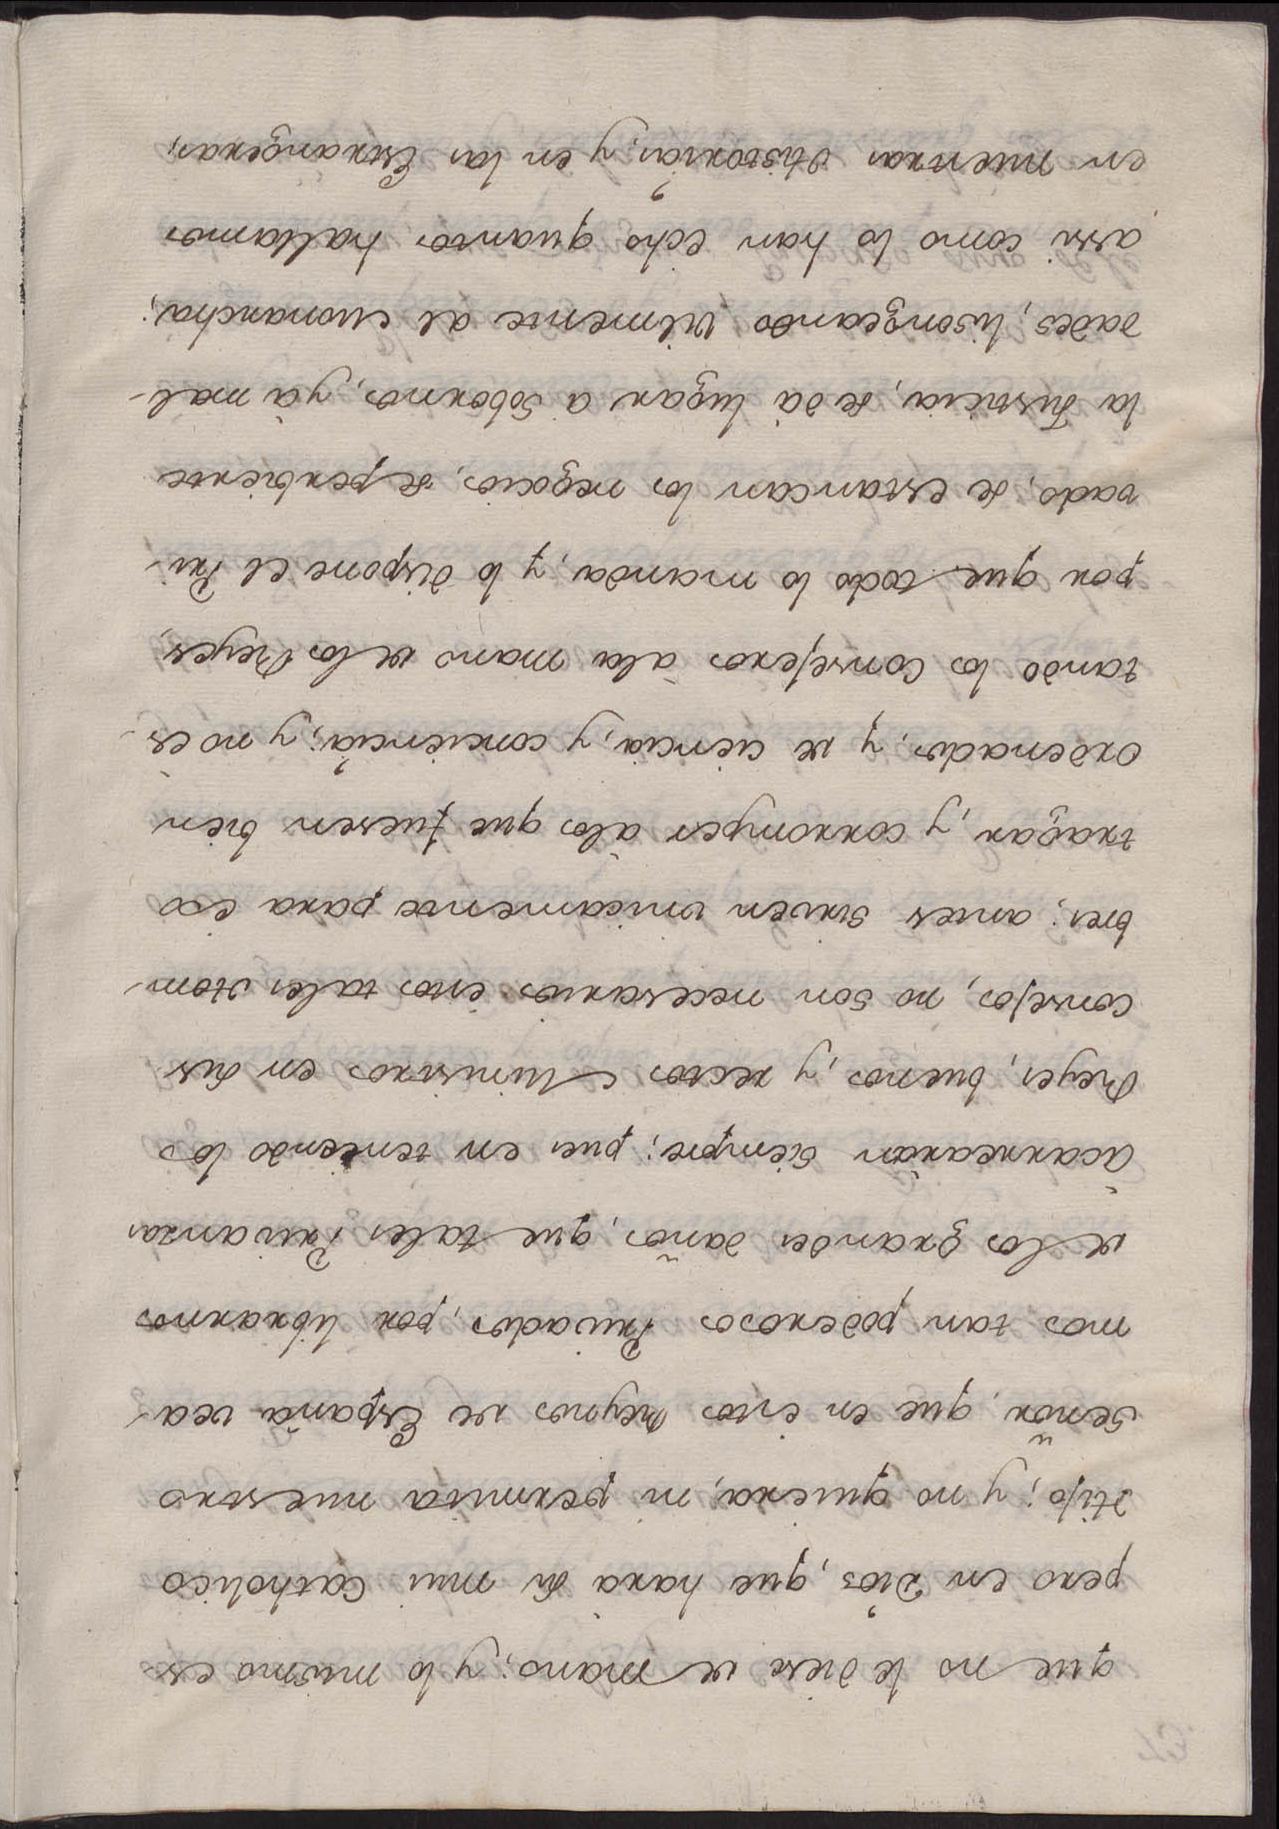 que no le diese de mano; y lo mismo es-
pero en Dios, que hara su mui Catholico
Hijo; y no quiera, ni permita nuestro
Señor, que en estos Reynos de España vea-
mos tan poderosos Privados, por librarnos
de los grandes daños, que tales Privanzas
àcarrearàn siempre; pues en teniendo los
Reyes, buenos, y rectos Ministros en sus
Consejos, no son necesarios estos tales Hom-
bres; antes sirven unicamente para éxô
tragar, y corromper àlos que fuesen bien
ordenados, y de ciencia, y conciencia; y no és-
tando los Consejeros àla mano de los Reyes,
por que todo lo manda, y lo dispone el Pri-
vado, se estancan los negocios, se perbierte
la Justicia, se dà lugar a Sobornos, y à mal-
dades, lisongeando vilmente al Monarcha;
assi como lo han echo quantos hallamos
en nuestras Historias, y en las Estrangeras,